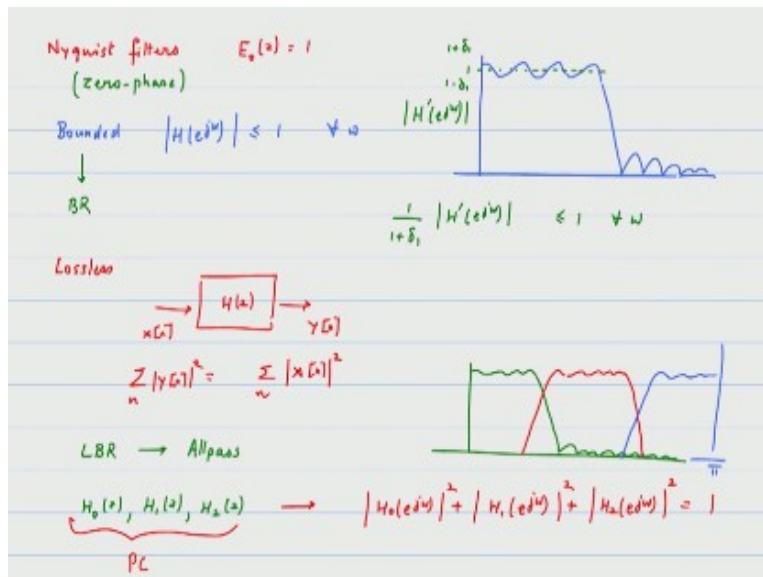 Nyquist filters E₀(z) = 1
(zero-phase)
1+δ₁
1
1-δ₁
|H'(e^jω)|
Bounded |H(e^jω)| ≤ 1 ∀ ω
↓
BR
1/(1+δ₁) |H'(e^jω)| ≤ 1 ∀ ω
Lossless
H(z)
x[n] y[n]
Σ_n |y[n]|² = Σ_n |x[n]|²
π
LBR → Allpass
H₀(z), H₁(z), H₂(z) → |H₀(e^jω)|² + |H₁(e^jω)|² + |H₂(e^jω)|² = 1
PC